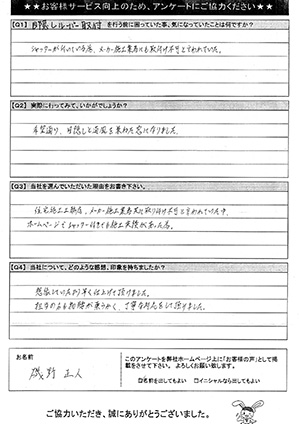 ★★お客様サービス向上のため、アンケートにご協力ください★★
【Q1】 目隠しルーバー取付 を行う前に困っていた事、気になっていたことは何ですか？
シャッターが付いている為、メーカー施工業者にも取付け不可と言われていた。
【Q2】 実際に行ってみて、いかがでしょうか？
希望通り、目隠しと通風を兼ねた窓になりました。
【Q3】 当社を選んでいただいた理由をお書き下さい。
住宅施工工務店、メーカー施工業者共に取り付け不可と言われていた中、
ホームページでシャッター付きでも施工実績があった為。
【Q4】 当社について、どのような感想、印象を持ちましたか？
想像していたより早く仕上げて頂けました。
担当の方も物腰が柔らかく、丁寧な対応をして頂けました。
お名前
磯野 正人
このアンケートを弊社ホームページ上に「お客様の声」として掲載をさせて下さい。よろしくお願い致します。
名前を出してもよい □イニシャルなら出してもよい
ご協力いただき、誠にありがとうございました。